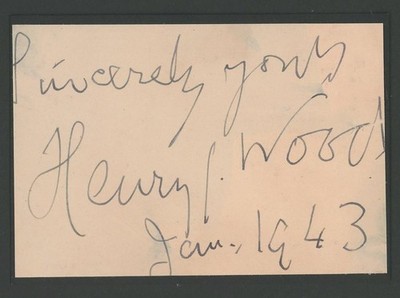 Sincerely yours
Henry J. Wood
Jan. 1943